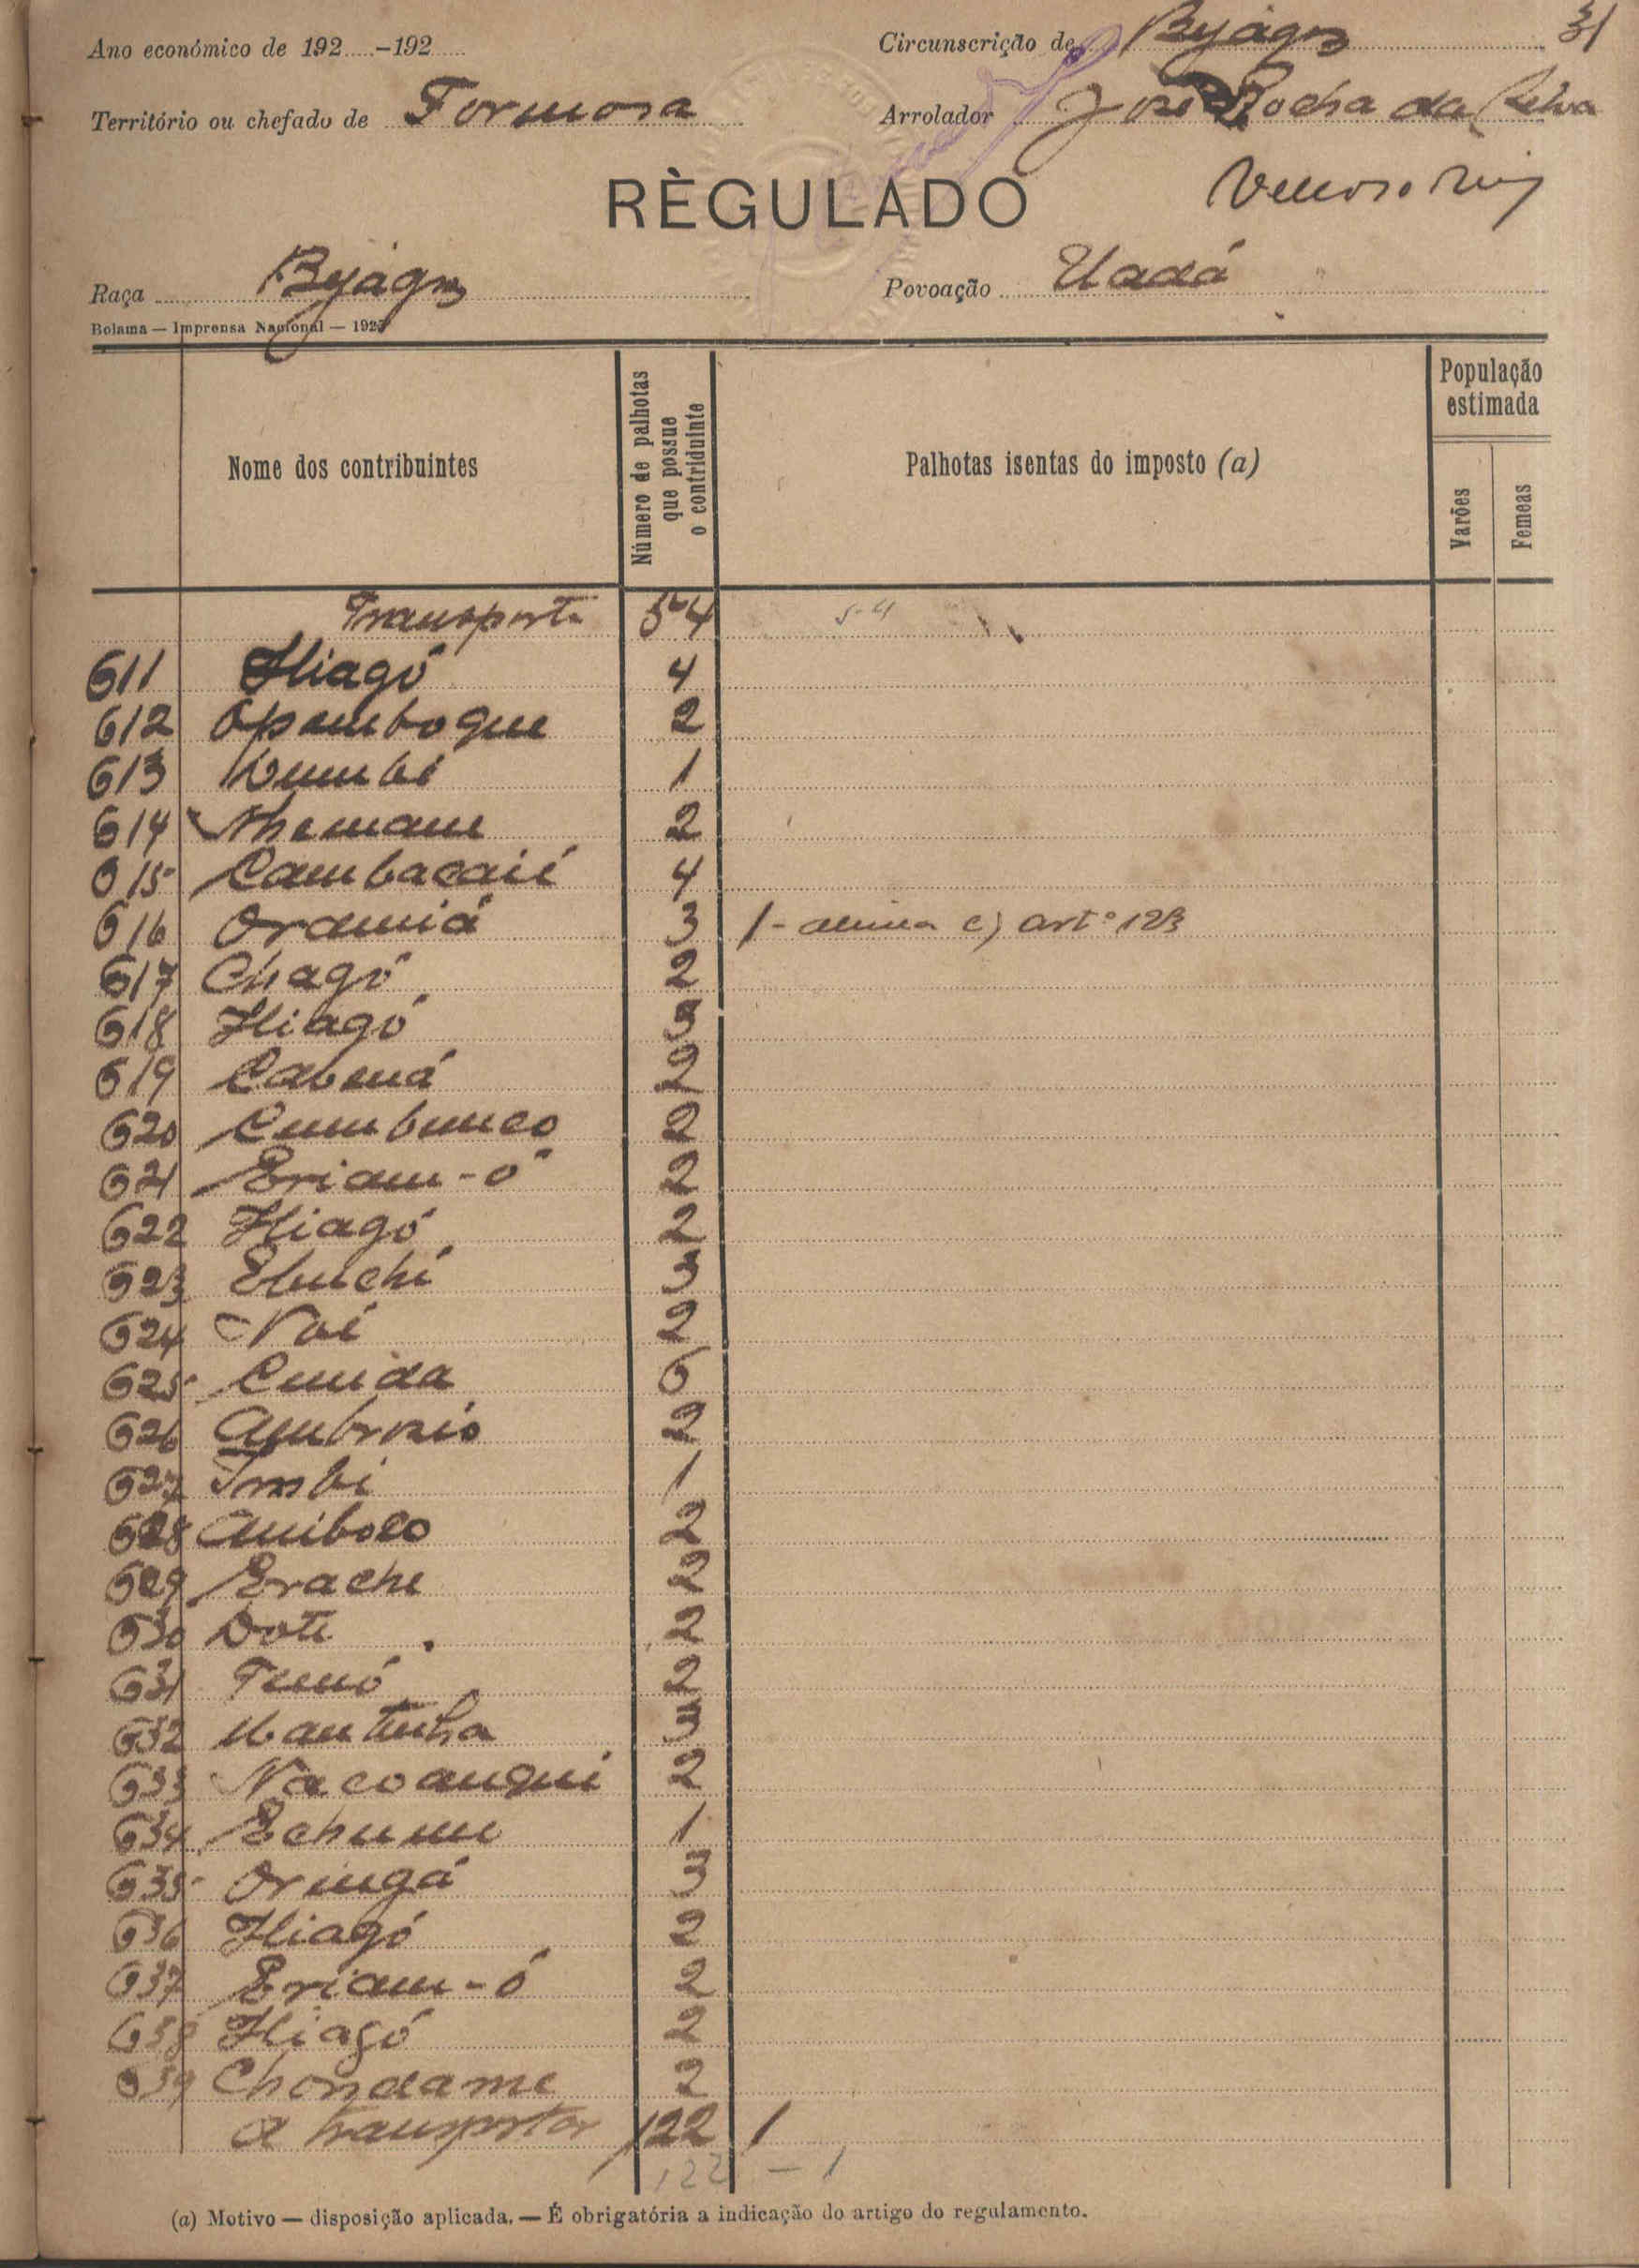 31
Ano económico de 192.....-192.....
Circunscrição de Byágos
Território ou chefado de Formosa
Arrolador José Rocha da Silva
RÈGULADO
Raça Byágos
Povoação Uadá
Bolama — Imprensa Nacional — 1925
Nome dos contribuintes
Número de palhotas que possue o contriduinte
Palhotas isentas do imposto (a)
População estimada
Varões
Femeas
Transporte 54 54
611 Iliagó 4
612 Opamboque 2
613 Dumbi 1
614 Nhemame 2
615 Cambacaié 4
616 Oramiá 3 1 - alinea c) artº 123
617 Chagó 2
618 Iliagó 3
619 Cabená 2
620 Cumbunco 2
621 Eriam-ó 2
622 Iliagó 2
623 Ebuchi 3
624 Noi 2
625 Cunida 6
626 Ambrosio 2
627 Imbi 1
628 Aniboco 2
629 Erache 2
630 Dote 2
631 Temó 2
632 Uantunha 3
633 Nacoanqui 2
634 Echume 1
635 Oringá 3
636 Iliagó 2
637 Eriam-ó 2
638 Iliagó 2
639 Chondame 2
A transportar 122 1
122 - 1
(a) Motivo — disposição aplicada. — É obrigatória a indicação do artigo do regulamento.